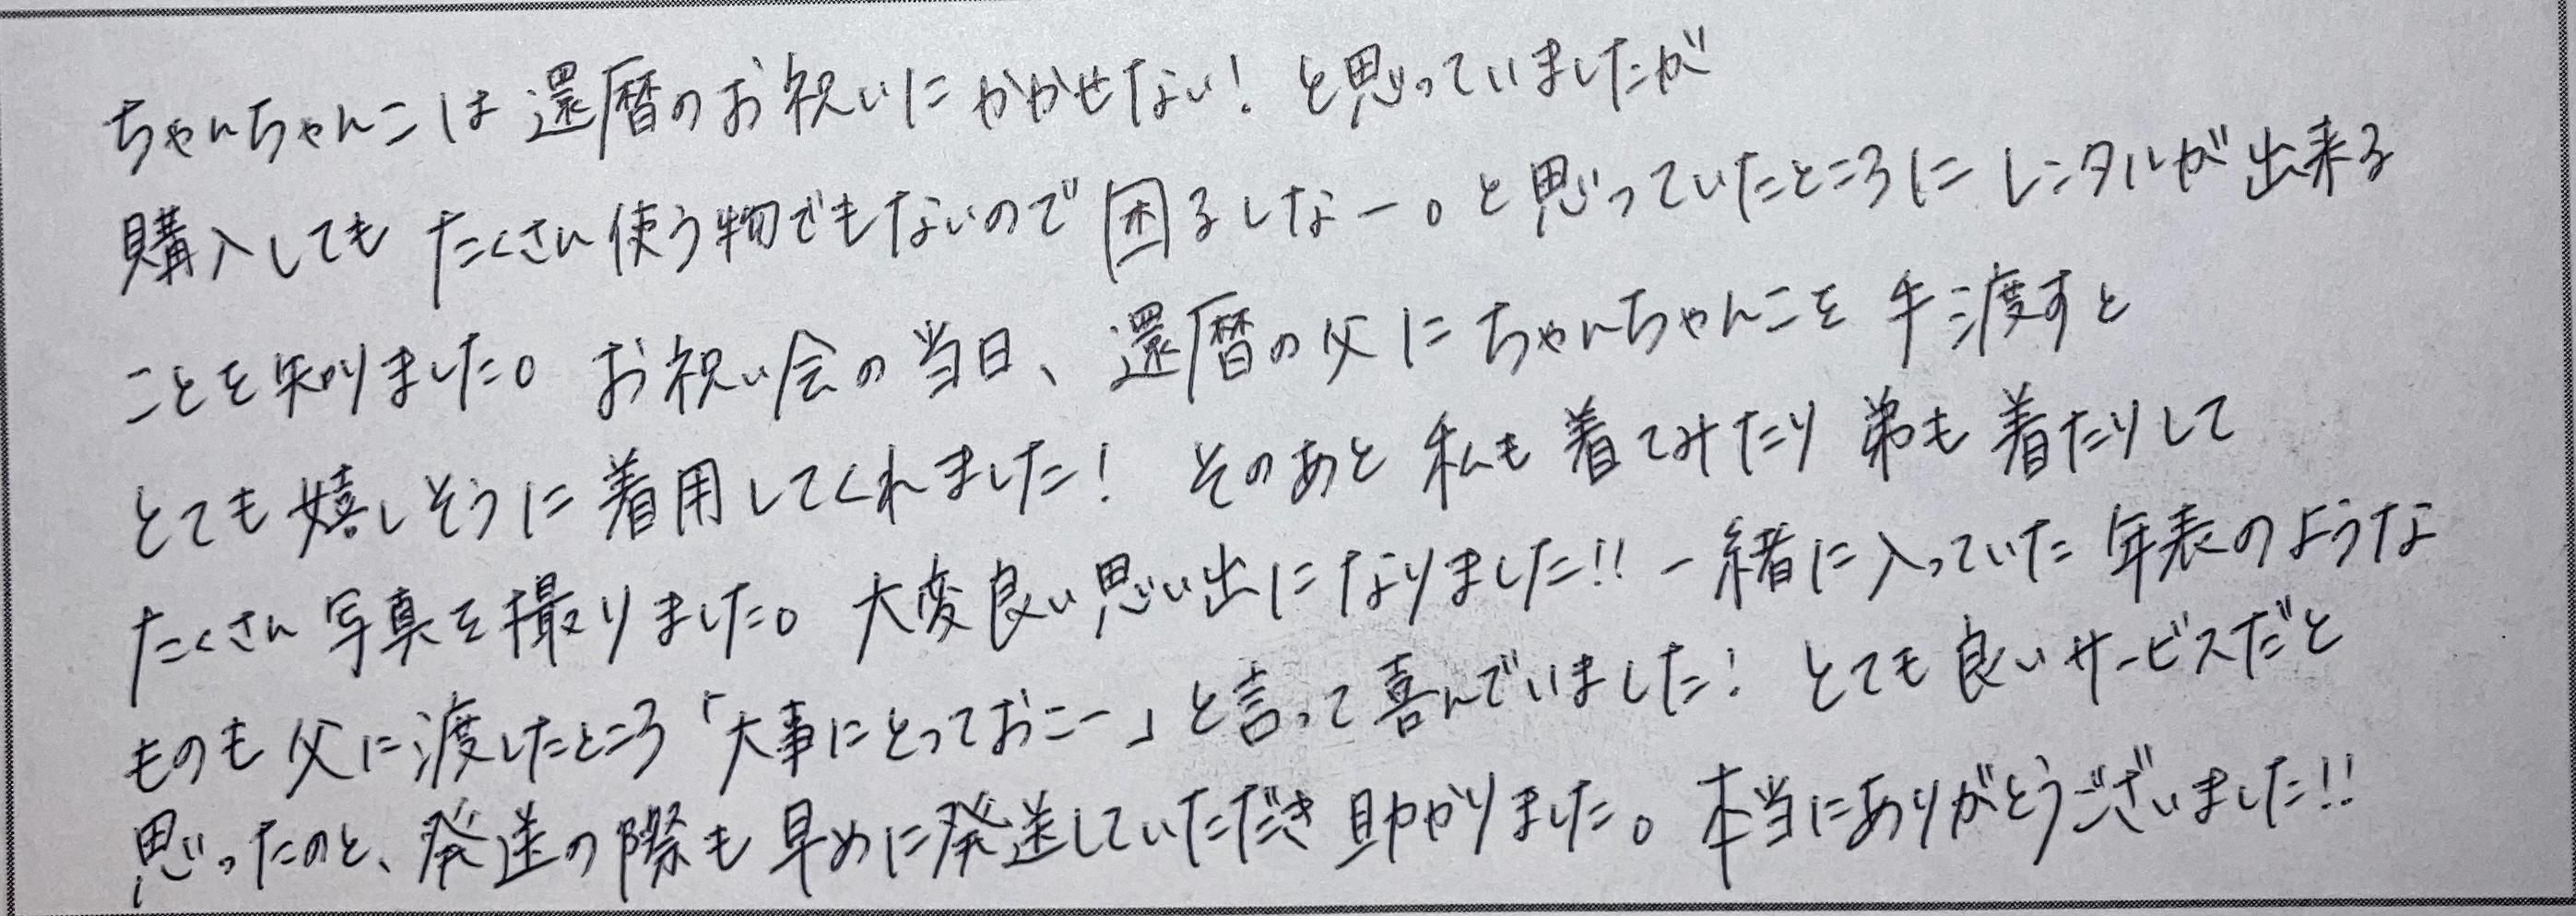 ちゃんちゃんこは還暦のお祝いにかかせない！と思っていましたが
購入してもたくさん使う物でもないので困るしなー。と思っていたところにレンタルが出来る
ことを知りました。お祝い会の当日、還暦の父にちゃんちゃんこを手渡すと
とても嬉しそうに着用してくれました！そのあと私も着てみたり弟も着たりして
たくさん写真を撮りました。大変良い思い出になりました!!一緒に入っていた年表のような
ものも父に渡したところ「大事にとっておこー」と言って喜んでいました！とても良いサービスだと
思ったのと、発送の際も早めに発送していただき助かりました。本当にありがとうございました!!